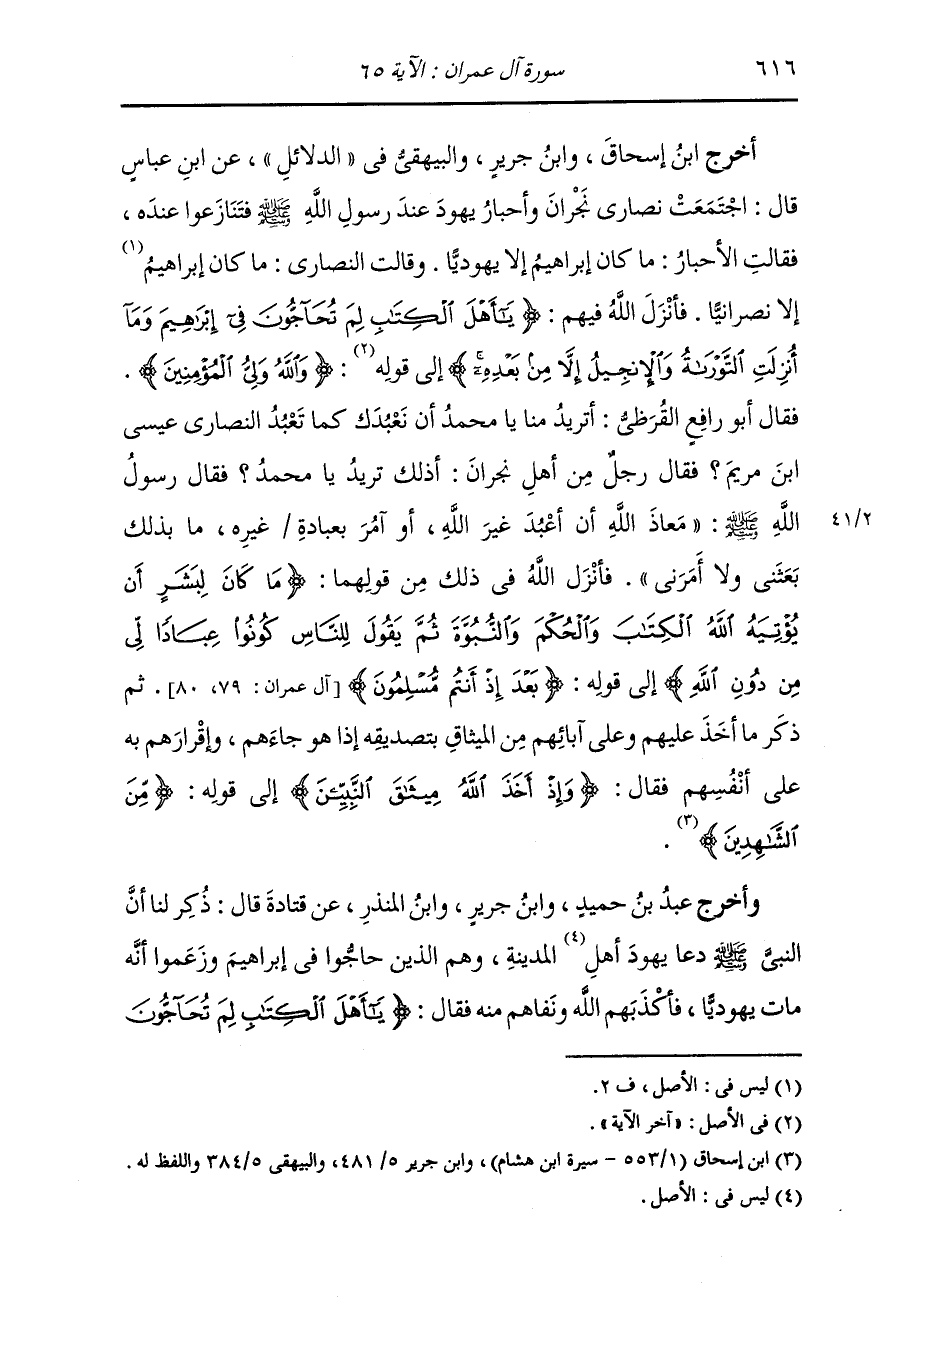 ٦١٦
سورة آل عمران : الآية ٦٥
أخرج ابنُ إسحاقَ ، وابنُ جريرٍ ، والبيهقىُّ فى « الدلائلِ » ، عن ابنِ عباسٍ
قال : اجْتَمَعَتْ نصارى نَجْرانَ وأحبارُ يهودَ عندَ رسولِ اللَّهِ ﷺ فتَنَازَعوا عندَه ،
فقالتِ الأحبارُ : ما كان إبراهيمُ إلا يهوديًّا . وقالت النصارى : ما كان إبراهيمُ(١)
إلا نصرانيًّا . فأنْزَلَ اللَّهُ فيهم : ﴿ يَٰٓأَهْلَ ٱلْكِتَٰبِ لِمَ تُحَآجُّونَ فِىٓ إِبْرَٰهِيمَ وَمَآ
أُنزِلَتِ ٱلتَّوْرَىٰةُ وَٱلْإِنجِيلُ إِلَّا مِنۢ بَعْدِهِۦٓ ﴾ إلى قولِه(٢) : ﴿ وَٱللَّهُ وَلِىُّ ٱلْمُؤْمِنِينَ ﴾ .
فقال أبو رافعٍ القُرَظىُّ : أتريدُ منا يا محمدُ أن نَعْبُدَك كما تَعْبُدُ النصارى عيسى
ابنَ مريمَ ؟ فقال رجلٌ مِن أهلِ نجرانَ : أذلك تريدُ يا محمدُ ؟ فقال رسولُ
اللَّهِ ﷺ : « مَعاذَ اللَّهِ أن أعْبُدَ غيرَ اللَّهِ ، أو آمُرَ بعبادةِ / غيرِه ، ما بذلك
٤١/٢
بَعَثَنى ولا أَمَرَنى » . فأنْزَل اللَّهُ فى ذلك مِن قولِهما : ﴿ مَا كَانَ لِبَشَرٍ أَن
يُؤْتِيَهُ ٱللَّهُ ٱلْكِتَٰبَ وَٱلْحُكْمَ وَٱلنُّبُوَّةَ ثُمَّ يَقُولَ لِلنَّاسِ كُونُوا۟ عِبَادًا لِّى
مِن دُونِ ٱللَّهِ ﴾ إلى قولِه : ﴿ بَعْدَ إِذْ أَنتُم مُّسْلِمُونَ ﴾ [آل عمران : ٧٩، ٨٠] . ثم
ذكَر ما أخَذَ عليهم وعلى آبائِهم مِن الميثاقِ بتصديقِه إذا هو جاءَهم ، وإقْرارَهم به
على أنْفُسِهم فقال : ﴿ وَإِذْ أَخَذَ ٱللَّهُ مِيثَٰقَ ٱلنَّبِيِّـۧنَ ﴾ إلى قولِه : ﴿ مِّنَ
ٱلشَّٰهِدِينَ ﴾(٣) .
وأخرج عبدُ بنُ حميدٍ ، وابنُ جريرٍ ، وابنُ المنذرِ ، عن قتادةَ قال : ذُكِر لنا أنَّ
النبىَّ ﷺ دعا يهودَ أهلِ(٤) المدينةِ ، وهم الذين حاجُّوا فى إبراهيمَ وزَعَموا أنَّه
مات يهوديًّا ، فأكْذَبَهم اللَّه ونَفاهم منه فقال : ﴿ يَٰٓأَهْلَ ٱلْكِتَٰبِ لِمَ تُحَآجُّونَ
(١) ليس فى : الأصل ، ف ٢ .
(٢) فى الأصل : «آخر الآية» .
(٣) ابن إسحاق (١/٥٥٣ - سيرة ابن هشام)، وابن جرير ٥/ ٤٨١، والبيهقى ٥/ ٣٨٤ واللفظ له .
(٤) ليس فى : الأصل .